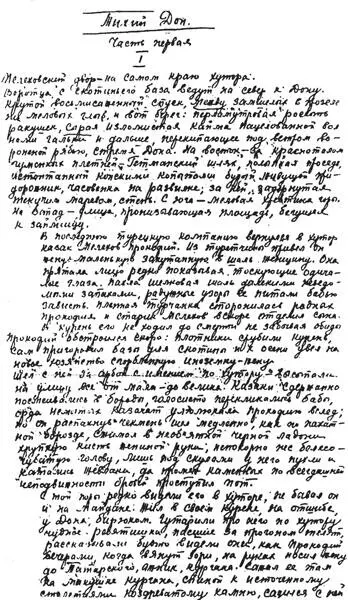 Тихий Дон.
Часть первая
I
Мелеховский двор – на самом краю хутора.
Воротца с скотиньего база ведут на север к Дону.
Крутой восьмисаженный спуск, между замшелых в прозеле-
ни меловых глыб, и вот берег: перламутровая россыпь
ракушек, серая изломистая кайма нацелованной вол-
нами гальки и дальше, перекипающее под ветром во-
роненой рябью, стремя Дона. На восток – за красноталом
гуменных плетней – Гетманский шлях, полынная проседь,
истоптанный конскими копытами бурый, живущой при-
дорожник, часовенка на развилке; за ней, задернутая
текучим маревом, степь. С юга – меловая хребтина горы.
На запад – улица, пронизывающая площадь, бегущая
к займищу.
В последнюю турецкую кампанию вернулся в хутор
казак Мелехов Прокофий. Из туретчины привел он
жену маленькую закутанную в шаль женщину. Она
прятала лицо редко показывая, тоскующие одича-
лые глаза. Пахла шелковая шаль далекими неведо-
мыми запахами, радужные узоры ее питали бабью
зависть. Пленная турчанка сторонилась родных
Прокофия и старик Мелехов вскоре отделил сына.
В курень его не ходил до смерти не забывая обиды
Прокофий обстроился скоро: плотники срубили курень,
сам пригородил база для скотины и к осени увел на
новое хозяйство сгорбленную иноземку-жену.
Шел с ней за арбой с имением по хутору – высыпали
на улицу все от мала до велика. Казаки сдержанно
посмеивались в бороды, голосисто перекликались бабы,
орда немытых казачат улюлюкала Прокофию вслед;
но он распахнув чекмень шел медленно, как по пахот-
ной борозде, сжимал в черной ладони
хрупкую кисть жениной руки, непокорно нес
голову, лишь под скулами у него пухли и
катались желваки, да промеж каменных по всегдашней
неподвижности бровей проступил пот.
С той поры редко видели его в хуторе, не бывал он
и на майдане. Жил в своем курене, на отшибе
у Дона, бирюком. Гутарили про него по хутору
чудное. Ребятишки, пасшие за прогоном телят
рассказывали будто видели они, как Прокофий
вечерами, когда вянут зори, на руках носил жену
до Татарского, ажник, кургана. Сажал ее там
на макушке кургана, спиной к источенному
столетиями ноздреватому камню, садился с ней